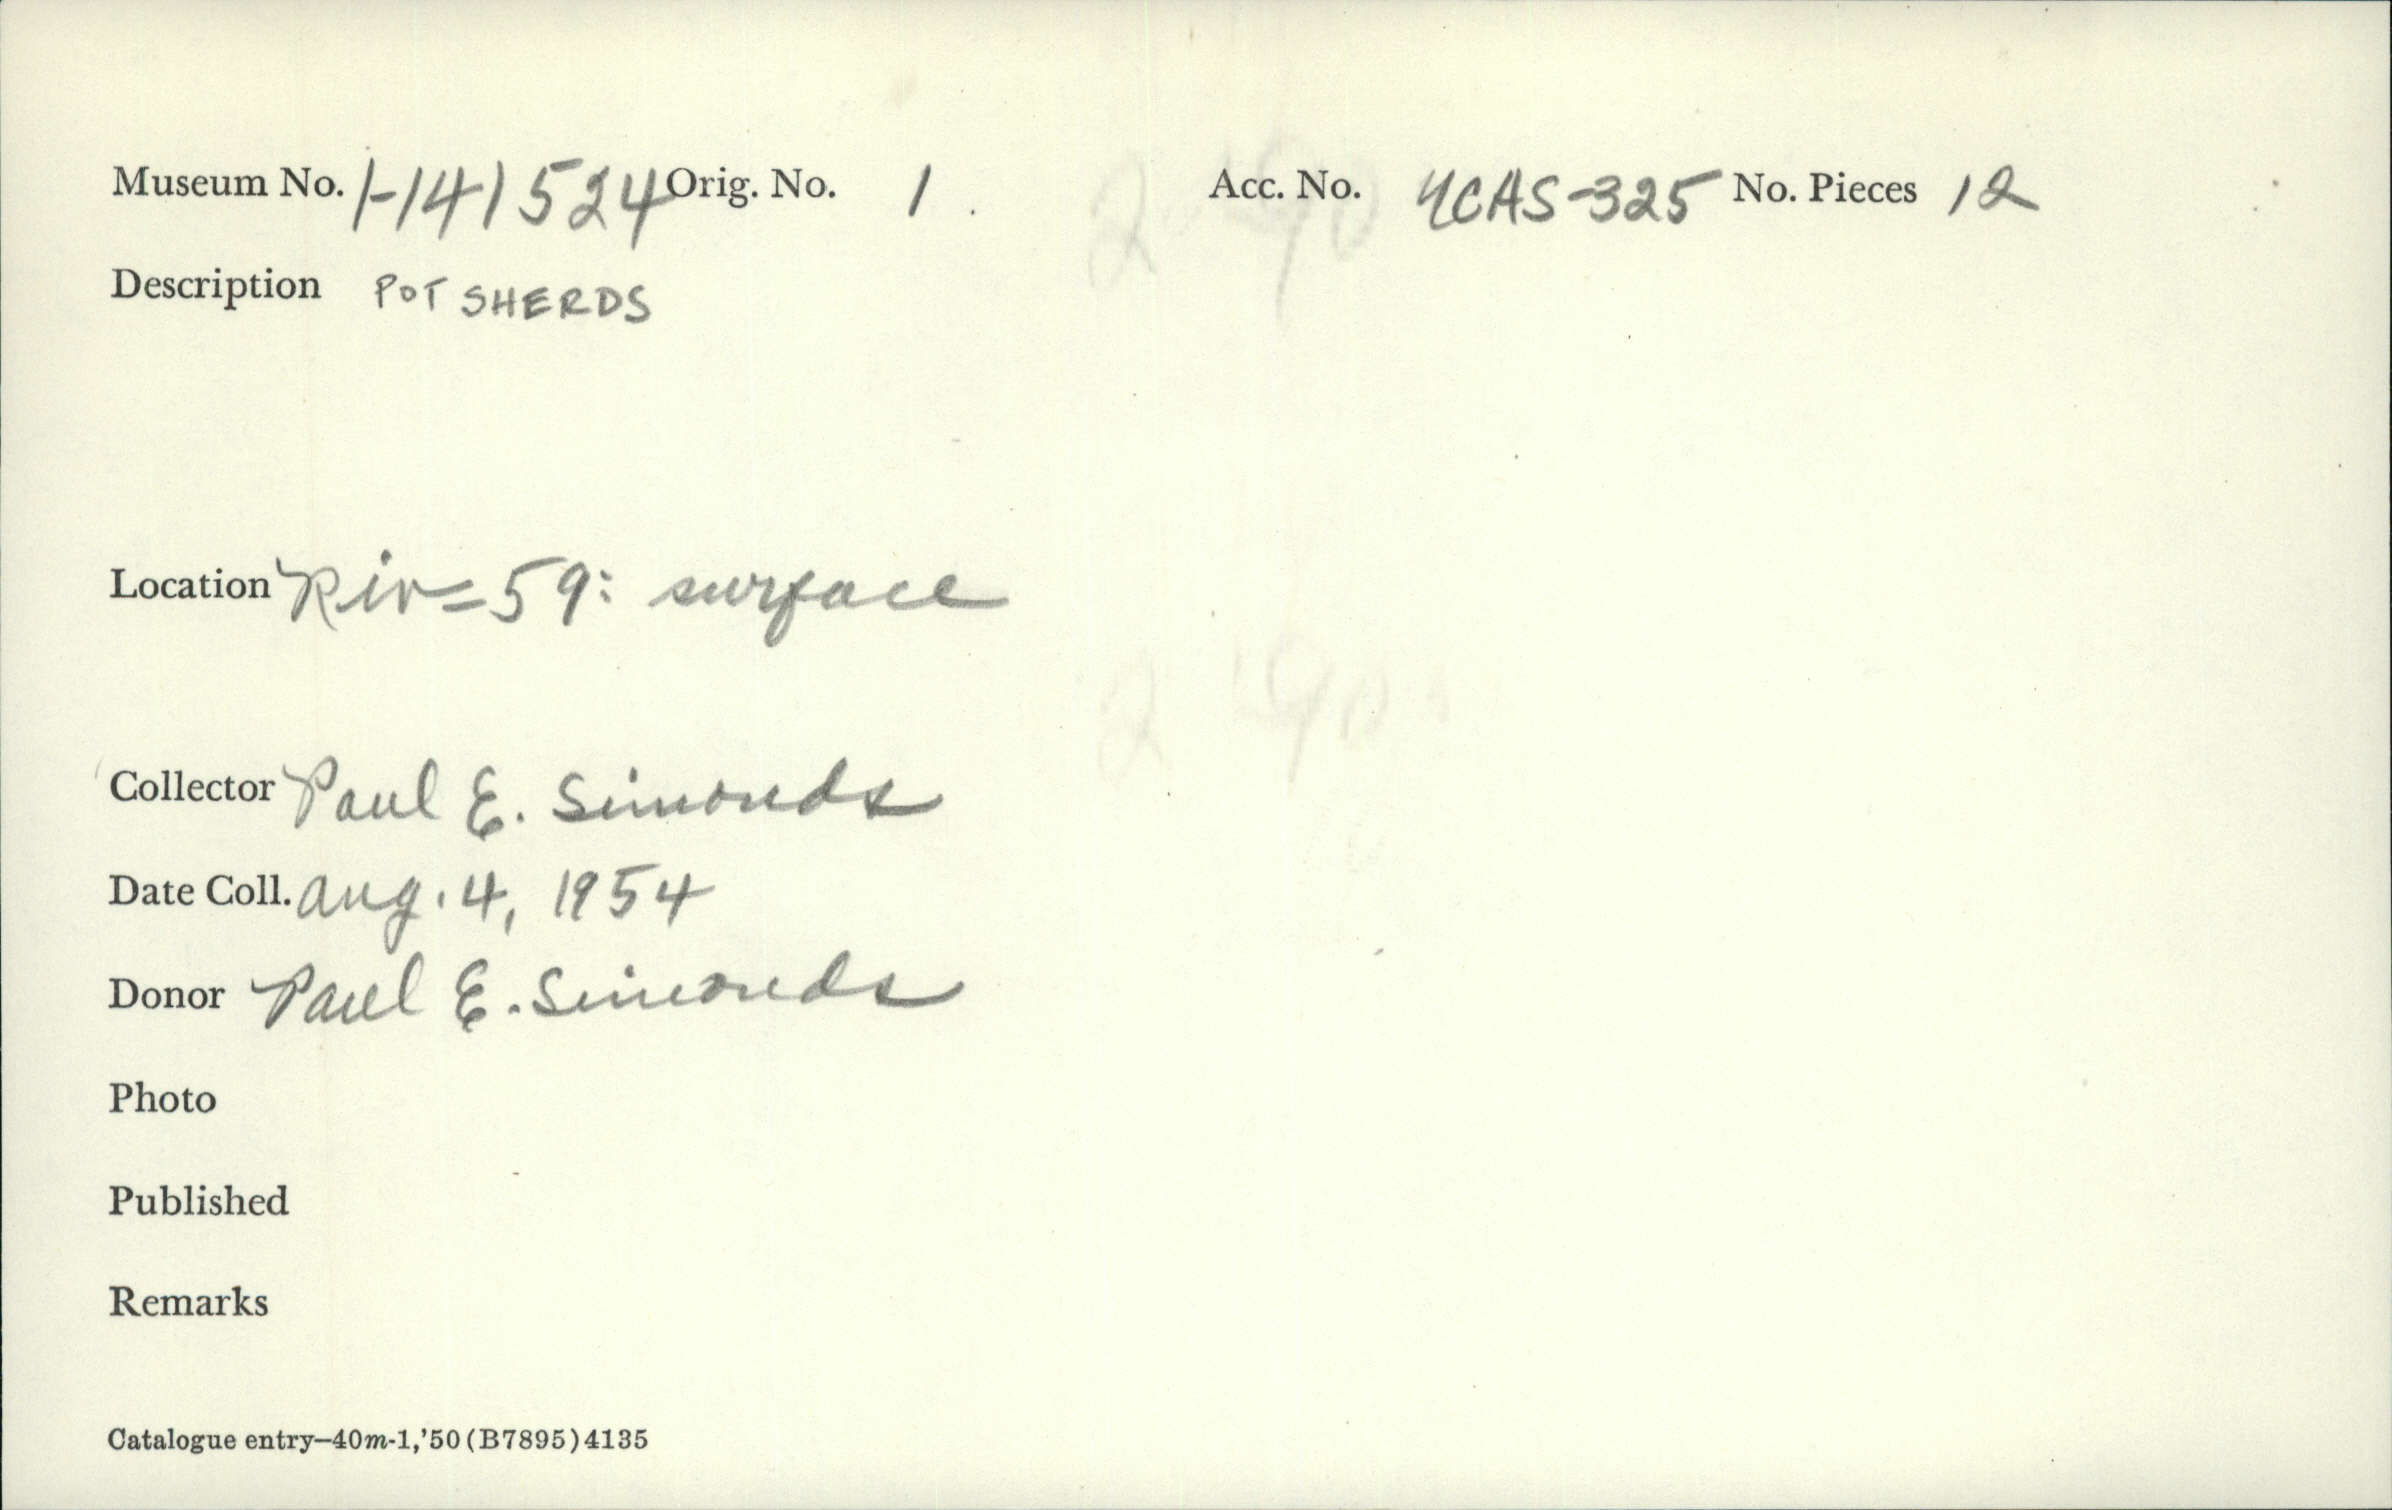 Museum No. 1-141524 Orig. No. 1. Acc. No. UCAS-325 No. Pieces 12
Description POT SHERDS
Location Riv-59: surface
Collector Paul E. Simonds
Date Coll. Aug. 4, 1954
Donor Paul E. Simonds
Photo
Published
Remarks
Catalogue entry—40m-1,'50(B7895)4135